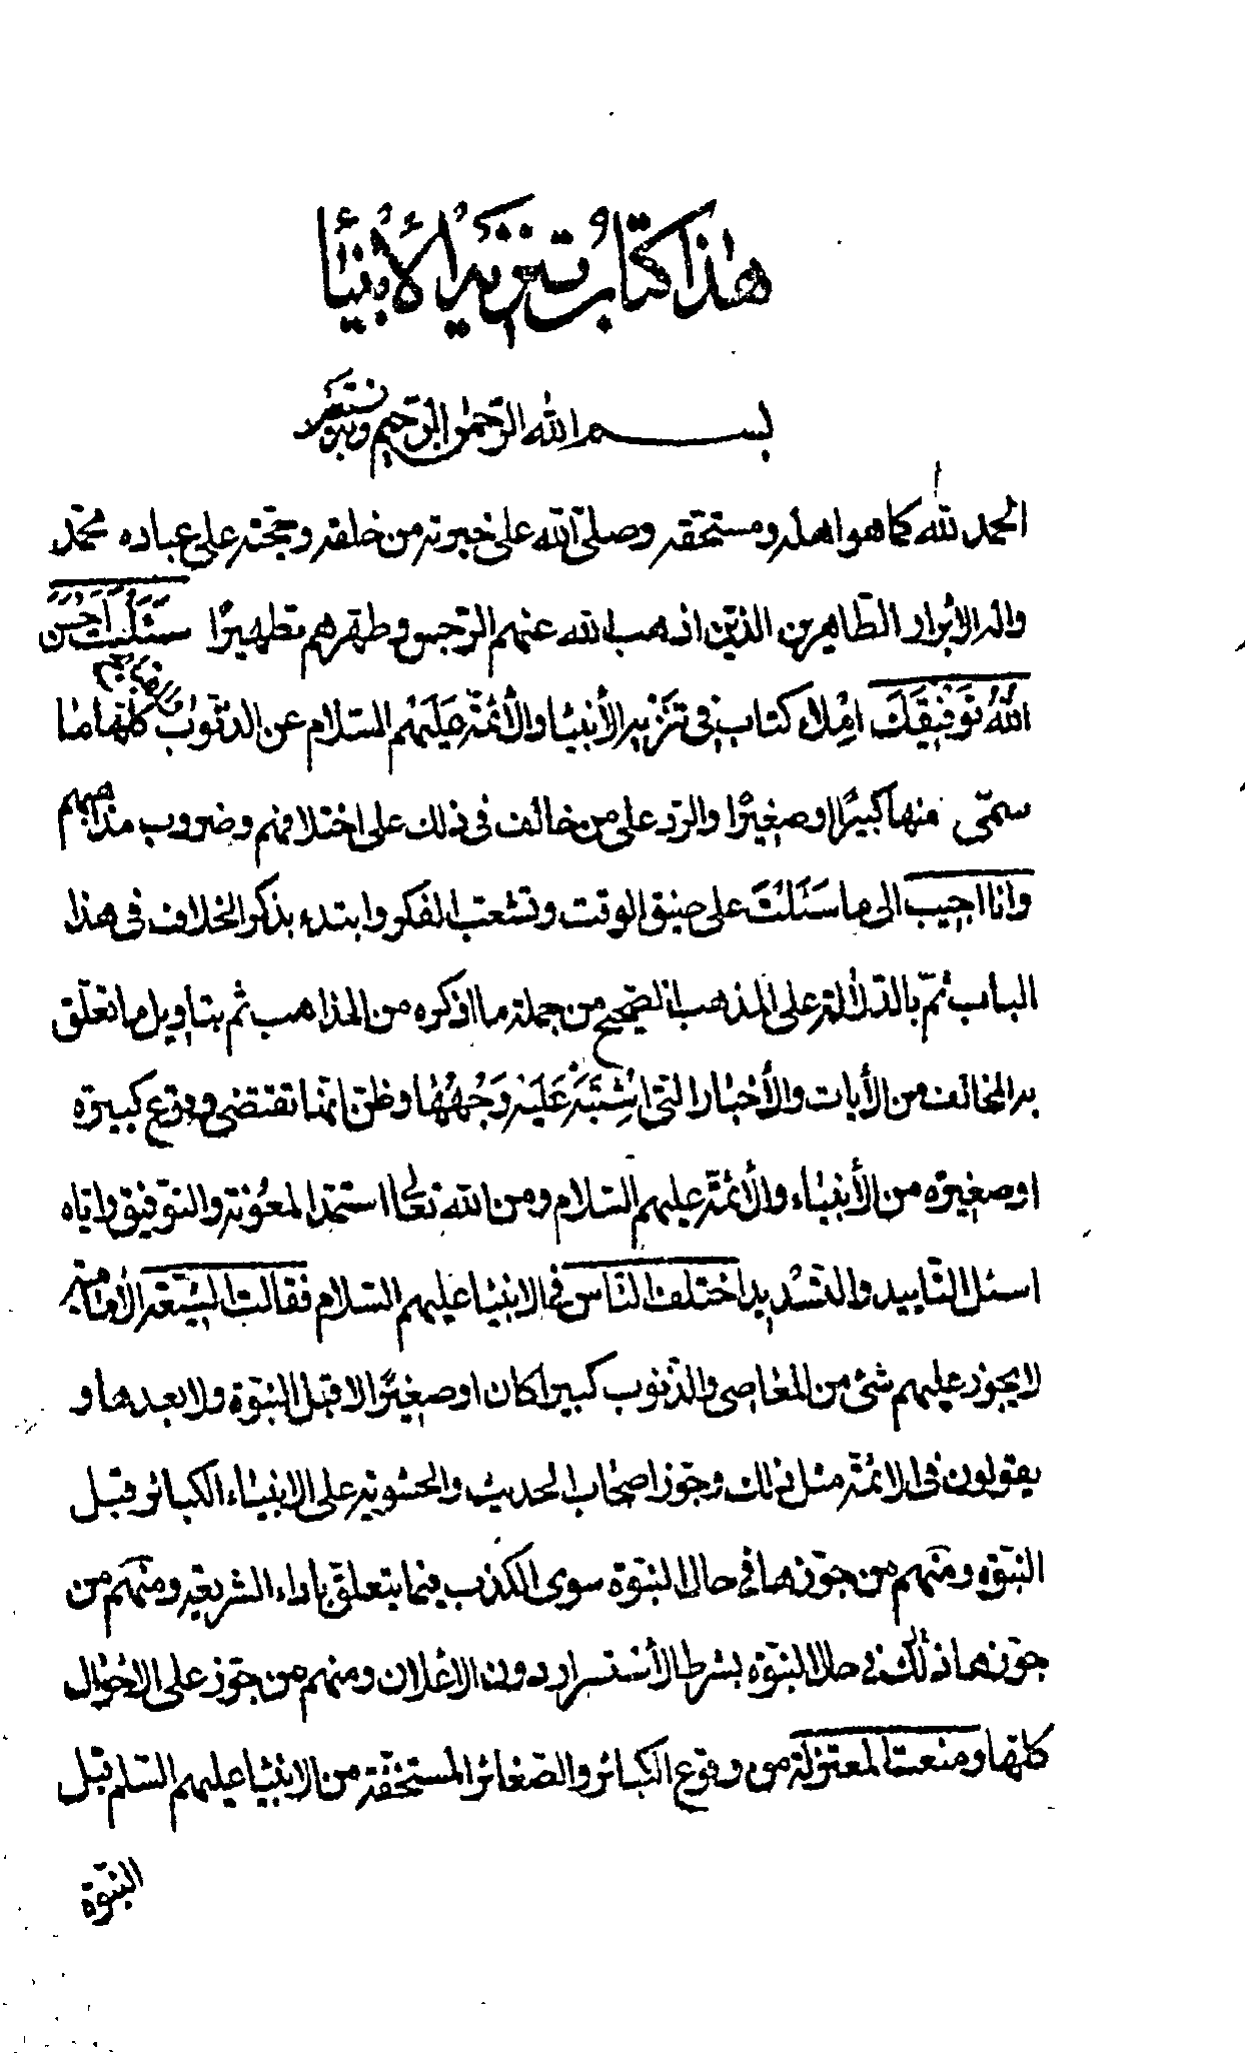 هذا كتابُ تنزيهُ الأنبياءُ
بسم الله الرّحمن الرّحيم وبه نستعين
الحمد لله كما هو اهله ومستحقه وصلّى الله على خيرته من خلقه وحجّته على عباده محمّد
واله الأبرار الطّاهرين الذّين اذهب الله عنهم الرّجس وطهّرهم تطهيرًا سَئَلْتَ اَحْسَنَ
اللهُ تَوفيقَكَ امْلاء كتاب في تنزيه الأنبياء والأئمّة عَلَيهُم السّلام عن الذنوب كلّها ما
سمّى منها كبيرًا او صغيرًا والرّد على من خالف في ذلك على اختلافهم وضروب مذاهبهم
وانا اجيب الى ما سَئَلْتَ على ضيق الوقت وتشعب الفكر وابتدء بذكر الخلاف في هذا
الباب ثمّ بالدّلالة على المذهب الصّحيح من جملة ما اذكره من المذاهب ثم بتأويل ما تعلّق
به المخالف من الأيات والأخبار التى اشْتَبَهَ عَلَيْه وَجْهُهٰا وظنّ انّها تقتضى وقوع كبيرة
او صغيرة من الأنبياء والأئمّة عليهم السّلام ومن الله تعالى استمدّ المعُونة والتّوفيق وايّاه
اسئل التّاييد والتّسْديد اختلف النّاس في الانبياء عليهم السّلام فقالت الشّيعة الأماميّة
لا يجوز عليهم شئ من المعاصى والذّنوب كبيرا كان او صغيرًا لا قبل النّبوّة ولا بعدها و
يقولون في الائمّة مثل ذلك وجوّز اصحٰاب الحديث والحشويّة على الانبيٰاء الكبائر قبل
النّبوّة ومنهم من جوّزها في حال النّبوّة سوى الكذب فيما يتعلّق باداء الشريعة ومنهم من
جوّزها ذٰلك في حال النّبوّة بشرط الأسْتسرار دون الاعْلان ومنهم من جوّز على الاحْوٰال
كلّها ومنعت المعتزلة من وقوع الكبائر والصّغائر المستخفّة من الانبيٰا عليهم السّلم قبل
النبّوّة